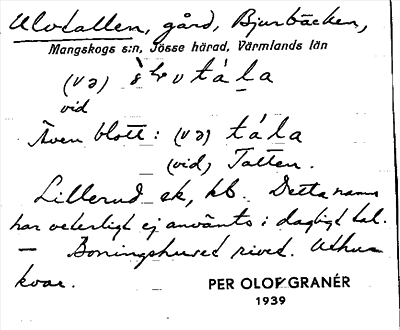 Ulvtallen, gård, Bjurbäcken,
Mangskogs s:n, Jösse härad, Värmlands län
(və) tála
vid
Även blott: (və) tála
(vid) Tallen.
Lillerud ek, kb. Detta namn
har veterligt ej använts i dagligt tal.
— Boningshuset rivet. Uthus
kvar.
PER OLOF GRANÉR
1939